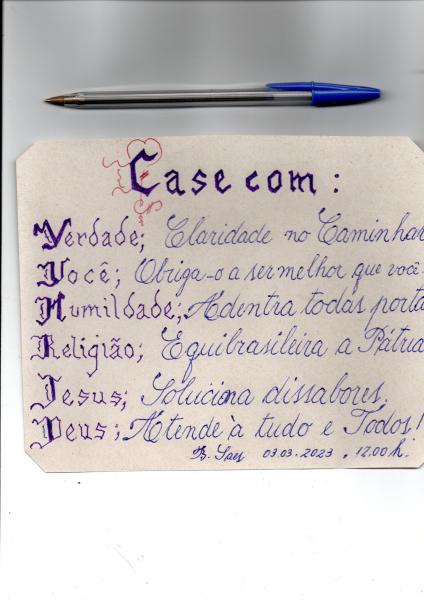 Case com:
Verdade; Claridade no Caminhar
Você; Obriga-o a ser melhor que você
Humildade; Adentra todas porta
Religião; Equibrasileira a Pátria
Jesus; Soluciona dissabores.
Deus; Atende à tudo e Todos!
B. Saes 03.03.2023, 12.00 h.